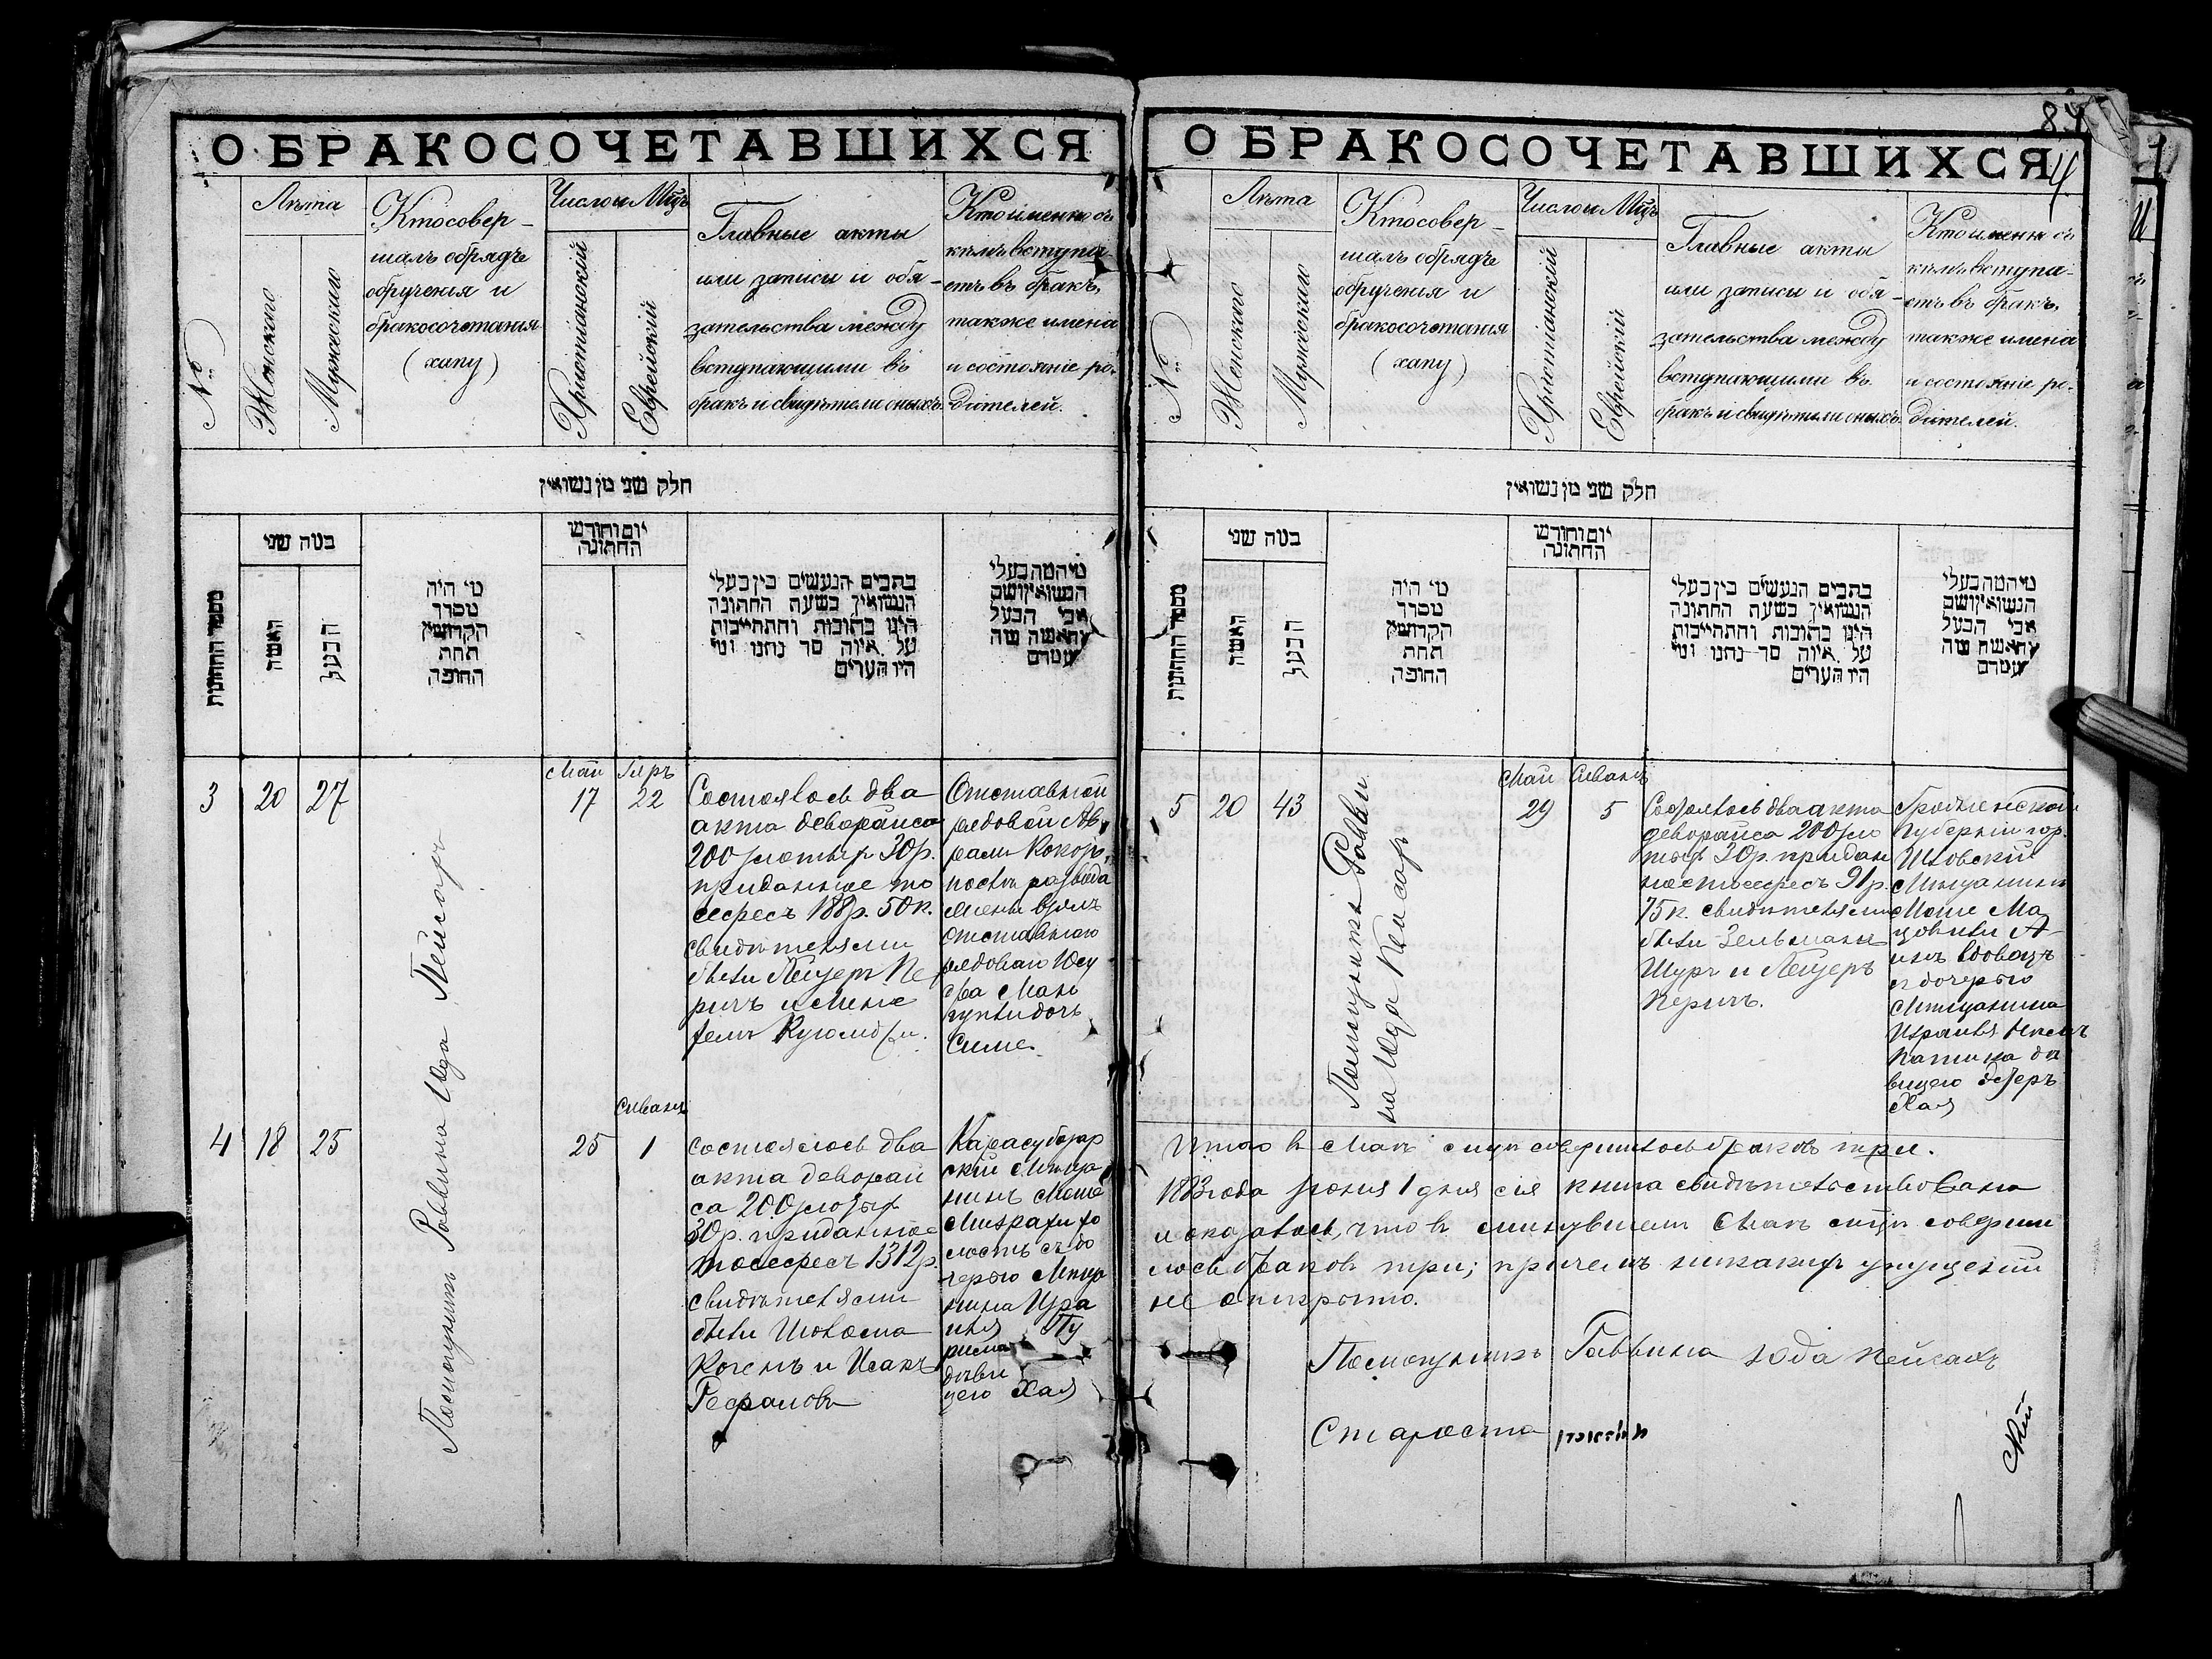 О БРАКОСОЧЕТАВШИХСЯ
№
Лѣта
Женскаго
Мужескаго
Кто совер-
шалъ обрядъ
обрученія и
бракосочетанія
(хапу)
Число и Мѣцъ
Христіанскій
Еврейскій
Главные акты
или записи и обя-
зательства между
вступающими въ
бракъ и свидѣтели оныхъ
Кто именно съ
кѣмъ вступа-
етъ въ бракъ,
также имена
и состояніе ро-
дителей.
חלק שני מן נשואין
מספר החתונות
כמה שני
האשה
הבעל
מי היה
מסדר
הקדושין
תחת
החופה
יום וחודש
החתונה
כתבים הנעשים בין בעלי
הנשואין בשעה החתונה
היינו כתובות והתחייבות
על איזה סך נתנו ומי
היו העדים
מי המה בעלי
הנשואין ושם
אבי הבעל
והאשה
3 20 27
Помощникъ Раввина Юда Пейсахъ
Май
17 22
Состоялось два
акта деворайса
200 злотыхъ 30 р.
приданное то
сефесъ 188 р. 50 к.
свидѣтелями
были Лейзеръ Пе
ричъ и Мена
Отставной
рядовой Ав
рамъ
послѣ развода
отставного
рядового
дочь
Симе.
Сиванъ
4 18 25
25 1
состоялось два
акта деворай
са 200 злотыхъ
30 р. приданное
тосефесъ 1312 р.
свидѣтелями
были Шолома
Когенъ и Исакъ
Рефаловъ
Карасубазар
скій Мѣща
нинъ Моше
Мизрахи хо
лостъ съ до
черью Мѣща
нина Изра
иля Пу
рима
дѣви
цею Хая
О БРАКОСОЧЕТАВШИХСЯ
84
4
№
Лѣта
Женскаго
Мужескаго
Кто совер-
шалъ обрядъ
обрученія и
бракосочетанія
(хапу)
Число и Мѣцъ
Христіанскій
Еврейскій
Главные акты
или записи и обя-
зательства между
вступающими въ
бракъ и свидѣтели оныхъ
Кто именно съ
кѣмъ вступа-
етъ въ бракъ,
также имена
и состояніе ро-
дителей.
חלק שני מן נשואין
מספר החתונות
כמה שני
האשה
הבעל
מי היה
מסדר
הקדושין
תחת
החופה
יום וחודש
החתונה
כתבים הנעשים בין בעלי
הנשואין בשעה החתונה
היינו כתובות והתחייבות
על איזה סך נתנו ומי
היו העדים
מי המה בעלי
הנשואין ושם
אבי הבעל
והאשה
5 20 43
Помощникъ Равви
на Юда Пейсахъ
Май Сиванъ
29 5
Состоялось два акта
деворайса 200 зло
тыхъ 30 р. придан
ное тосефесъ 91 р.
75 к. свидѣтелями
были Зельманъ
Шуръ и Лейзеръ
Перичъ.
Гродненской
Губерніи гор.
Мѣщанинъ
Моше Ма
вдовецъ
съ дочерью
Мѣщанина
Израиля
дѣ
вицею Эстеръ
Хая
Итого въ Маѣ мцѣ совершилось браковъ три.
1883 года Іюня 1 дня сія книга свидѣтельствована
и оказалось, что въ минувшемъ Маѣ мцѣ соверши
лось браковъ три; причемъ никакихъ упущеній
не открыто.
Помощникъ Раввина Юда Пейсахъ
Староста